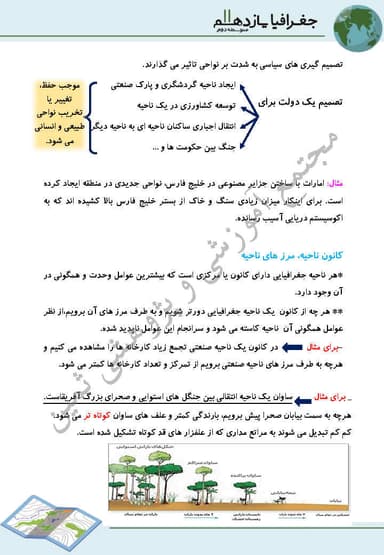 جغرافیا یازدهم
متوسطه دوم
تصمیم گیری های سیاسی به شدت بر نواحی تاثیر می گذارند.
ایجاد ناحیه گردشگری و پارک صنعتی
تصمیم یک دولت برای
توسعه کشاورزی در یک ناحیه
انتقال اجباری ساکنان ناحیه ای به ناحیه دیگر
جنگ بین حکومت ها و ...
موجب حفظ،
تغییر یا
تخریب نواحی
طبیعی و انسانی
می شود.
مثال: امارات با ساختن جزایر مصنوعی در خلیج فارس، نواحی جدیدی در منطقه ایجاد کرده
است. برای اینکار میزان زیادی سنگ و خاک از بستر خلیج فارس بالا کشیده اند که به
اکوسیستم دریایی آسیب رسانده.
کانون ناحیه، مرز های ناحیه
*هر ناحیه جغرافیایی دارای کانون یا مرکزی است که بیشترین عوامل وحدت و همگونی در
آن وجود دارد.
** هر چه از کانون یک ناحیه جغرافیایی دورتر شویم و به طرف مرز های آن برویم،از نظر
عوامل همگونی آن ناحیه کاسته می شود و سرانجام این عوامل ناپدید شده.
-برای مثال در کانون یک ناحیه صنعتی تجمع زیاد کارخانه ها را مشاهده می کنیم و
هرچه به طرف مرز های ناحیه صنعتی برویم از تمرکز و تعداد کارخانه ها کمتر می شود.
_ برای مثال ساوان یک ناحیه انتقالی بین جنگل های استوایی و صحرای بزرگ آفریقاست.
هرچه به سمت بیابان صحرا پیش برویم، بارندگی کمتر و علف های ساوان کوتاه تر می شود.
کم کم تبدیل می شوند به مراتع مداری که از علفزار های قد کوتاه تشکیل شده است.